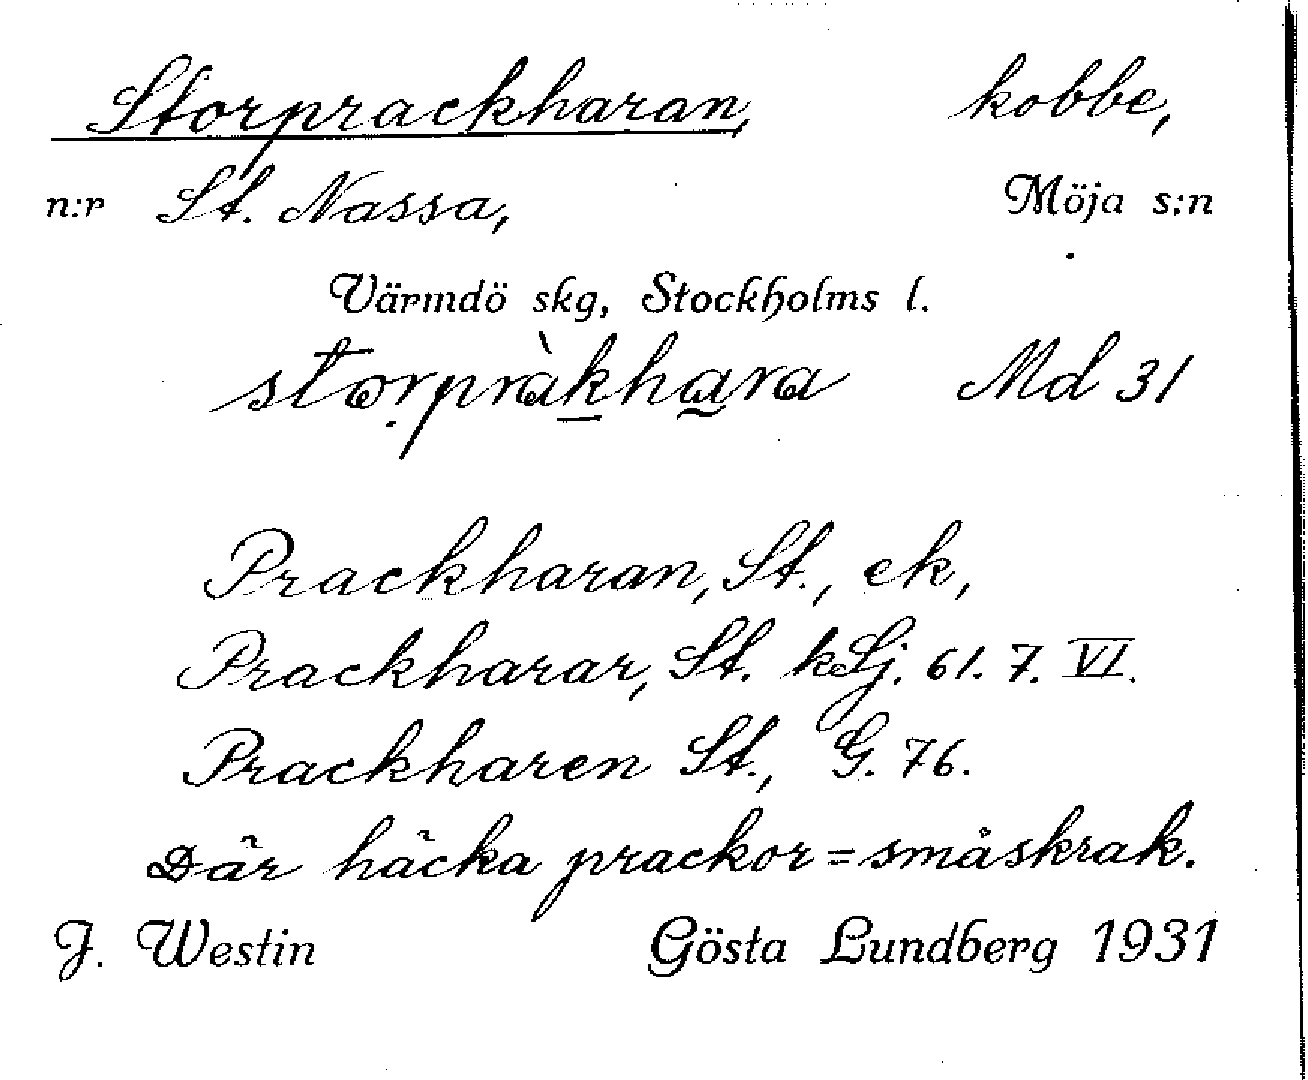 Storprackharan, kobbe,
n:r St. Nassa, Möja s:n
Värmdö skg, Stockholms l.
storpràkhara Md 31
Prackharan, St., ek,
Prackharar, St. kSj. 61. 7. VI.
Prackharen St., G. 76.
Där häcka prackor = småskrak.
J. Westin Gösta Lundberg 1931